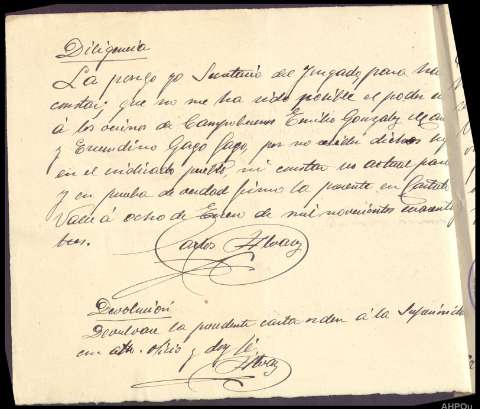 Diligencia
La pongo yo Secretario del Juzgado para ha
constar, que no me ha sido posible el poder
á los vecinos de Emilio Gonzalez
y Gago, por no residir dichos
en el indicado pueblo, ni constar su actual par
y en prueba de verdad firmo la presente en
á ocho de Enero de mil novecientos cuarent
tres.
Carlos Alvarez
Devolución
Devuelvase la precedente carta orden á la Superiorida
con oficio y doy fé.
Alvarez
AHPOu